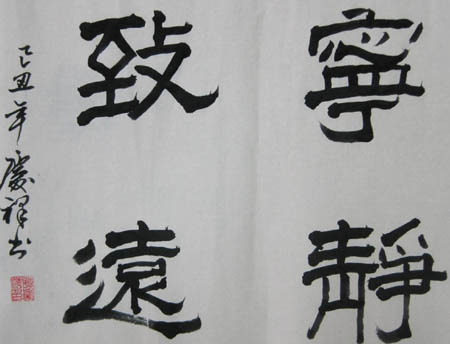 寧靜
致遠
己丑年慶祥书